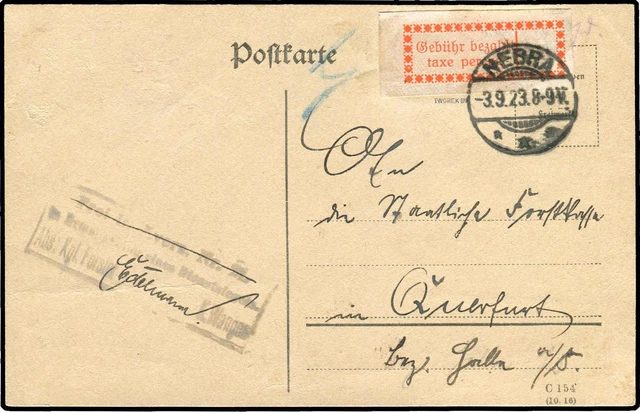 Postkarte
Gebühr bezahlt
taxe per
NEBRA
-3.9.23.8-9V.
An
die Staatliche Forstkasse
in Querfurt
Bez. Halle a/S.
Frei
Nr.
Abs. Kgl. Forst
Edelmann.
C 154
(10. 16)